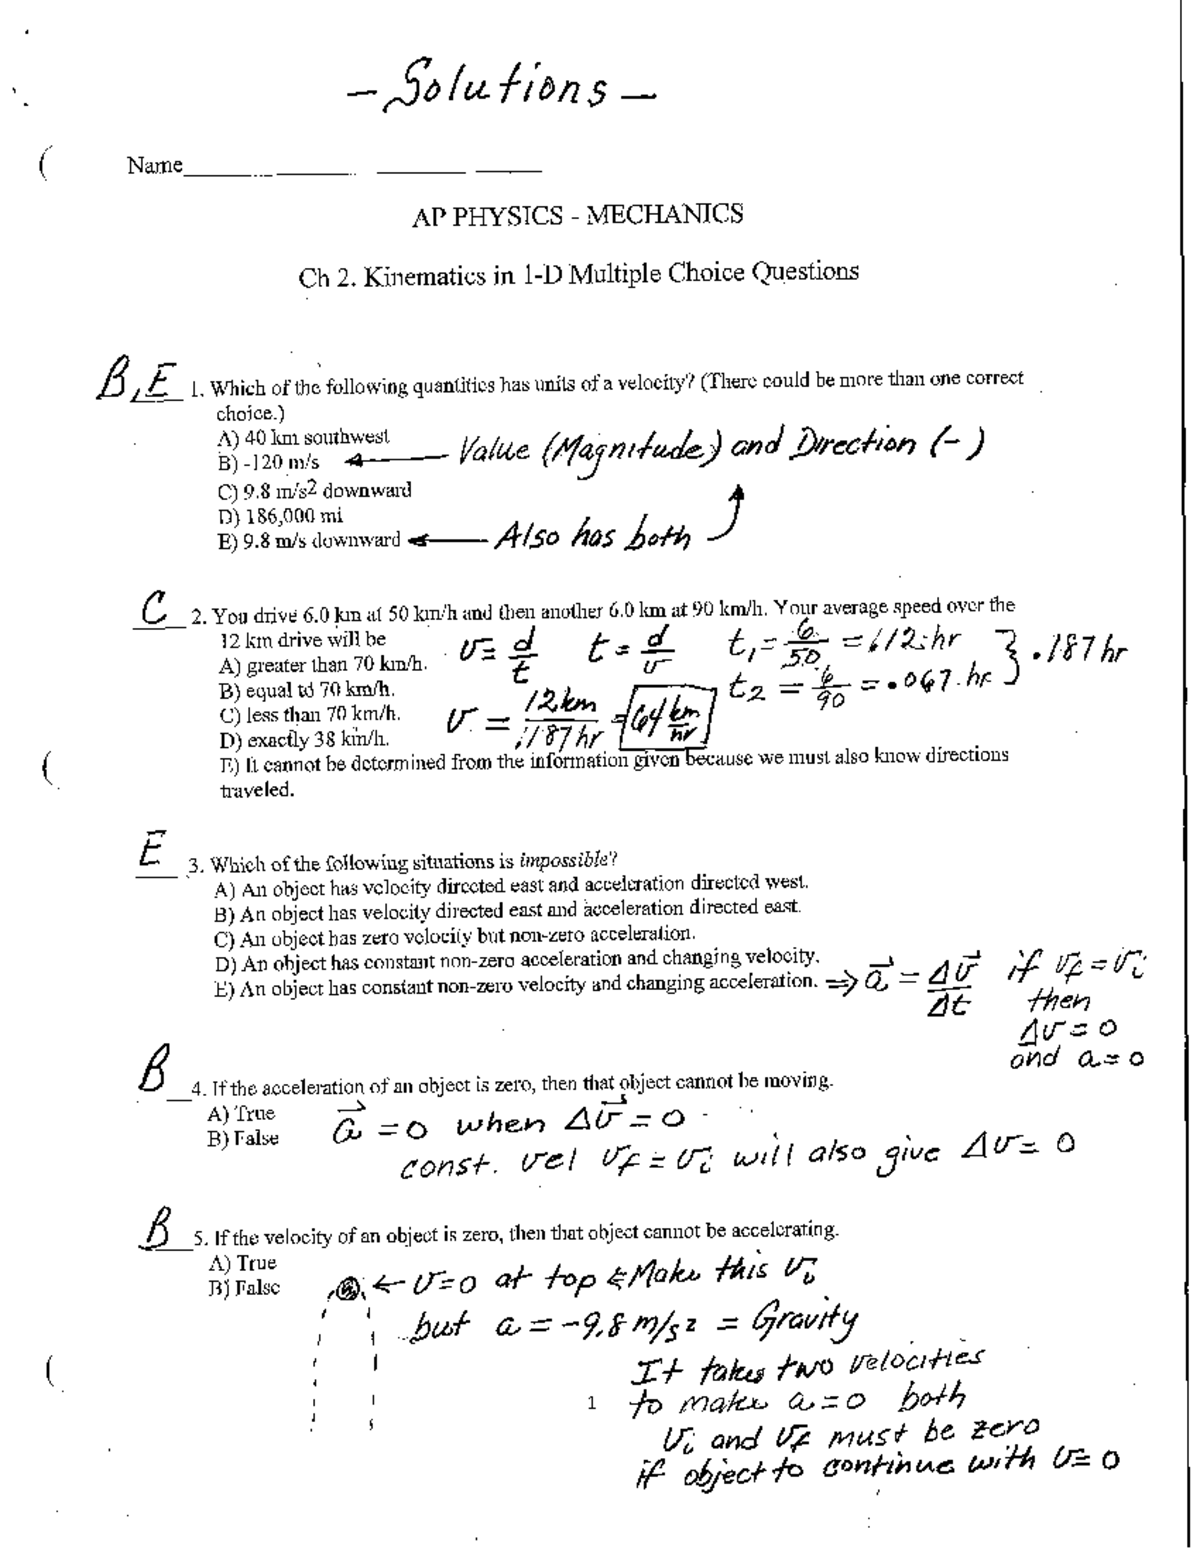 - Solutions -
Name
AP PHYSICS - MECHANICS
Ch 2. Kinematics in 1-D Multiple Choice Questions
B, E 1. Which of the following quantities has units of a velocity? (There could be more than one correct
choice.)
A) 40 km southwest
B) -120 m/s ← Value (Magnitude) and Direction (-)
C) 9.8 m/s² downward
D) 186,000 mi
E) 9.8 m/s downward ← Also has both
C 2. You drive 6.0 km at 50 km/h and then another 6.0 km at 90 km/h. Your average speed over the
12 km drive will be
v = d/t t = d/v t₁ = 6/50 = .12 hr } .187 hr
A) greater than 70 km/h.
B) equal to 70 km/h. t₂ = 6/90 = .067 hr
C) less than 70 km/h. v = 12 km/.187 hr = 64 km/hr
D) exactly 38 km/h.
E) It cannot be determined from the information given because we must also know directions
traveled.
E 3. Which of the following situations is impossible?
A) An object has velocity directed east and acceleration directed west.
B) An object has velocity directed east and acceleration directed east.
C) An object has zero velocity but non-zero acceleration.
D) An object has constant non-zero acceleration and changing velocity.
E) An object has constant non-zero velocity and changing acceleration. ⇒ a = Δv/Δt if vf = vi
then
Δv = 0
and a = 0
B 4. If the acceleration of an object is zero, then that object cannot be moving.
A) True a = 0 when Δv = 0
B) False
const. vel vf = vi will also give Δv = 0
B 5. If the velocity of an object is zero, then that object cannot be accelerating.
A) True
B) False ← v=0 at top & Make this vi
but a = -9.8 m/s² = Gravity
It takes two velocities
1 to make a = 0 both
vi and vf must be zero
if object to continue with v = 0